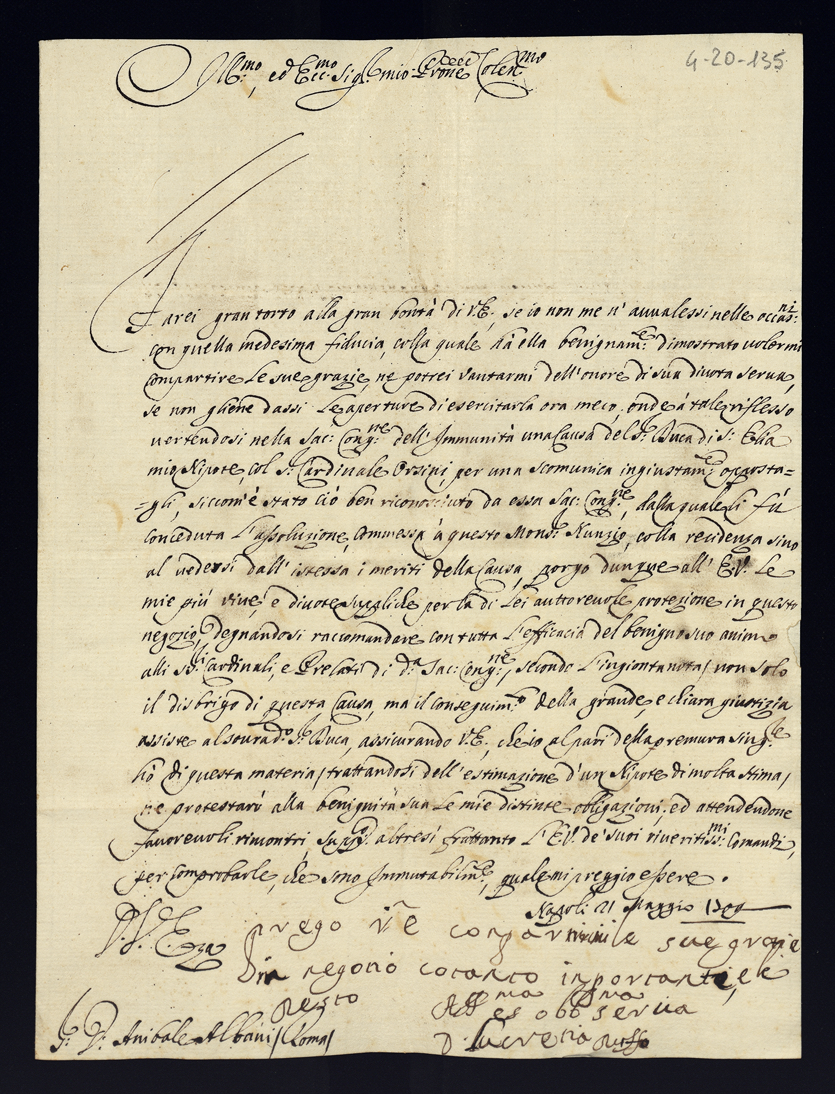 4-20-135
Ill:mo, ed Ecc:mo Sig:r mio Prone Colen:mo
Farei gran torto alla gran bontà di V.E., se io non me n' auualessi nelle occas:ni
con quella medesima fiducia, colla quale hà ella benignam:te dimostrato uolermi
compartire le sue grazie, ne potrei vantarmi dell' onore di sua diuota serua,
se non gliene dassi le aperture di esercitarla ora meco, onde à tale riflesso
vertendosi nella Sac: Cong:ne dell' Immunità una Causa del S:r Duca di S: Elia
mio Nipote, col S:r Cardinale Orsini, per una scomunica ingiustam:te oposta=
=gli, siccom'è stato ciò ben riconosciuto da essa Sac: Cong:ne, dalla quale li fù
conceduta l'assoluzione, commessa à questo Mons:r Nunzio, colla reuidenza sino
al uedersi dall' istessa i meriti della Causa, porgo dunque all' E.V. le
mie più viue, e diuote suppliche per la di Lei auttoreuole protezione in questo
negozio, degnandosi raccomandare con tutta l'efficacia del benigno suo animo
alli SS:ri Cardinali, e Prelati di d:a Sac: Cong:ne, secondo l'ingionta nota, non solo
il disbrigo di questa Causa, ma il conseguim:to della grande, e chiara giustizia
assiste al sourad:o S:r Duca, assicurando V.E., che io al pari della premura sing:le
hò di questa materia, trattandosi dell' estimazione d'un Nipote di molta stima,
ne protestarò alla benignità sua le mie distinte obligazioni, ed attendendone
fauoreuoli riscontri supp:co altresì frattanto l'E.V. de' suoi riueritiss:mi Comandi,
per comprobarle, che sono Immutabilm:te, quale mi preggio essere.
Napoli 21 Maggio 1700
D. V. E.za
prego V.E. conpartirmi le sue grazie
in negozio cotanto inportante, e
resto
es obb serua
D. Lucrezia Russo
S:r D. Anibale Albani / Roma /